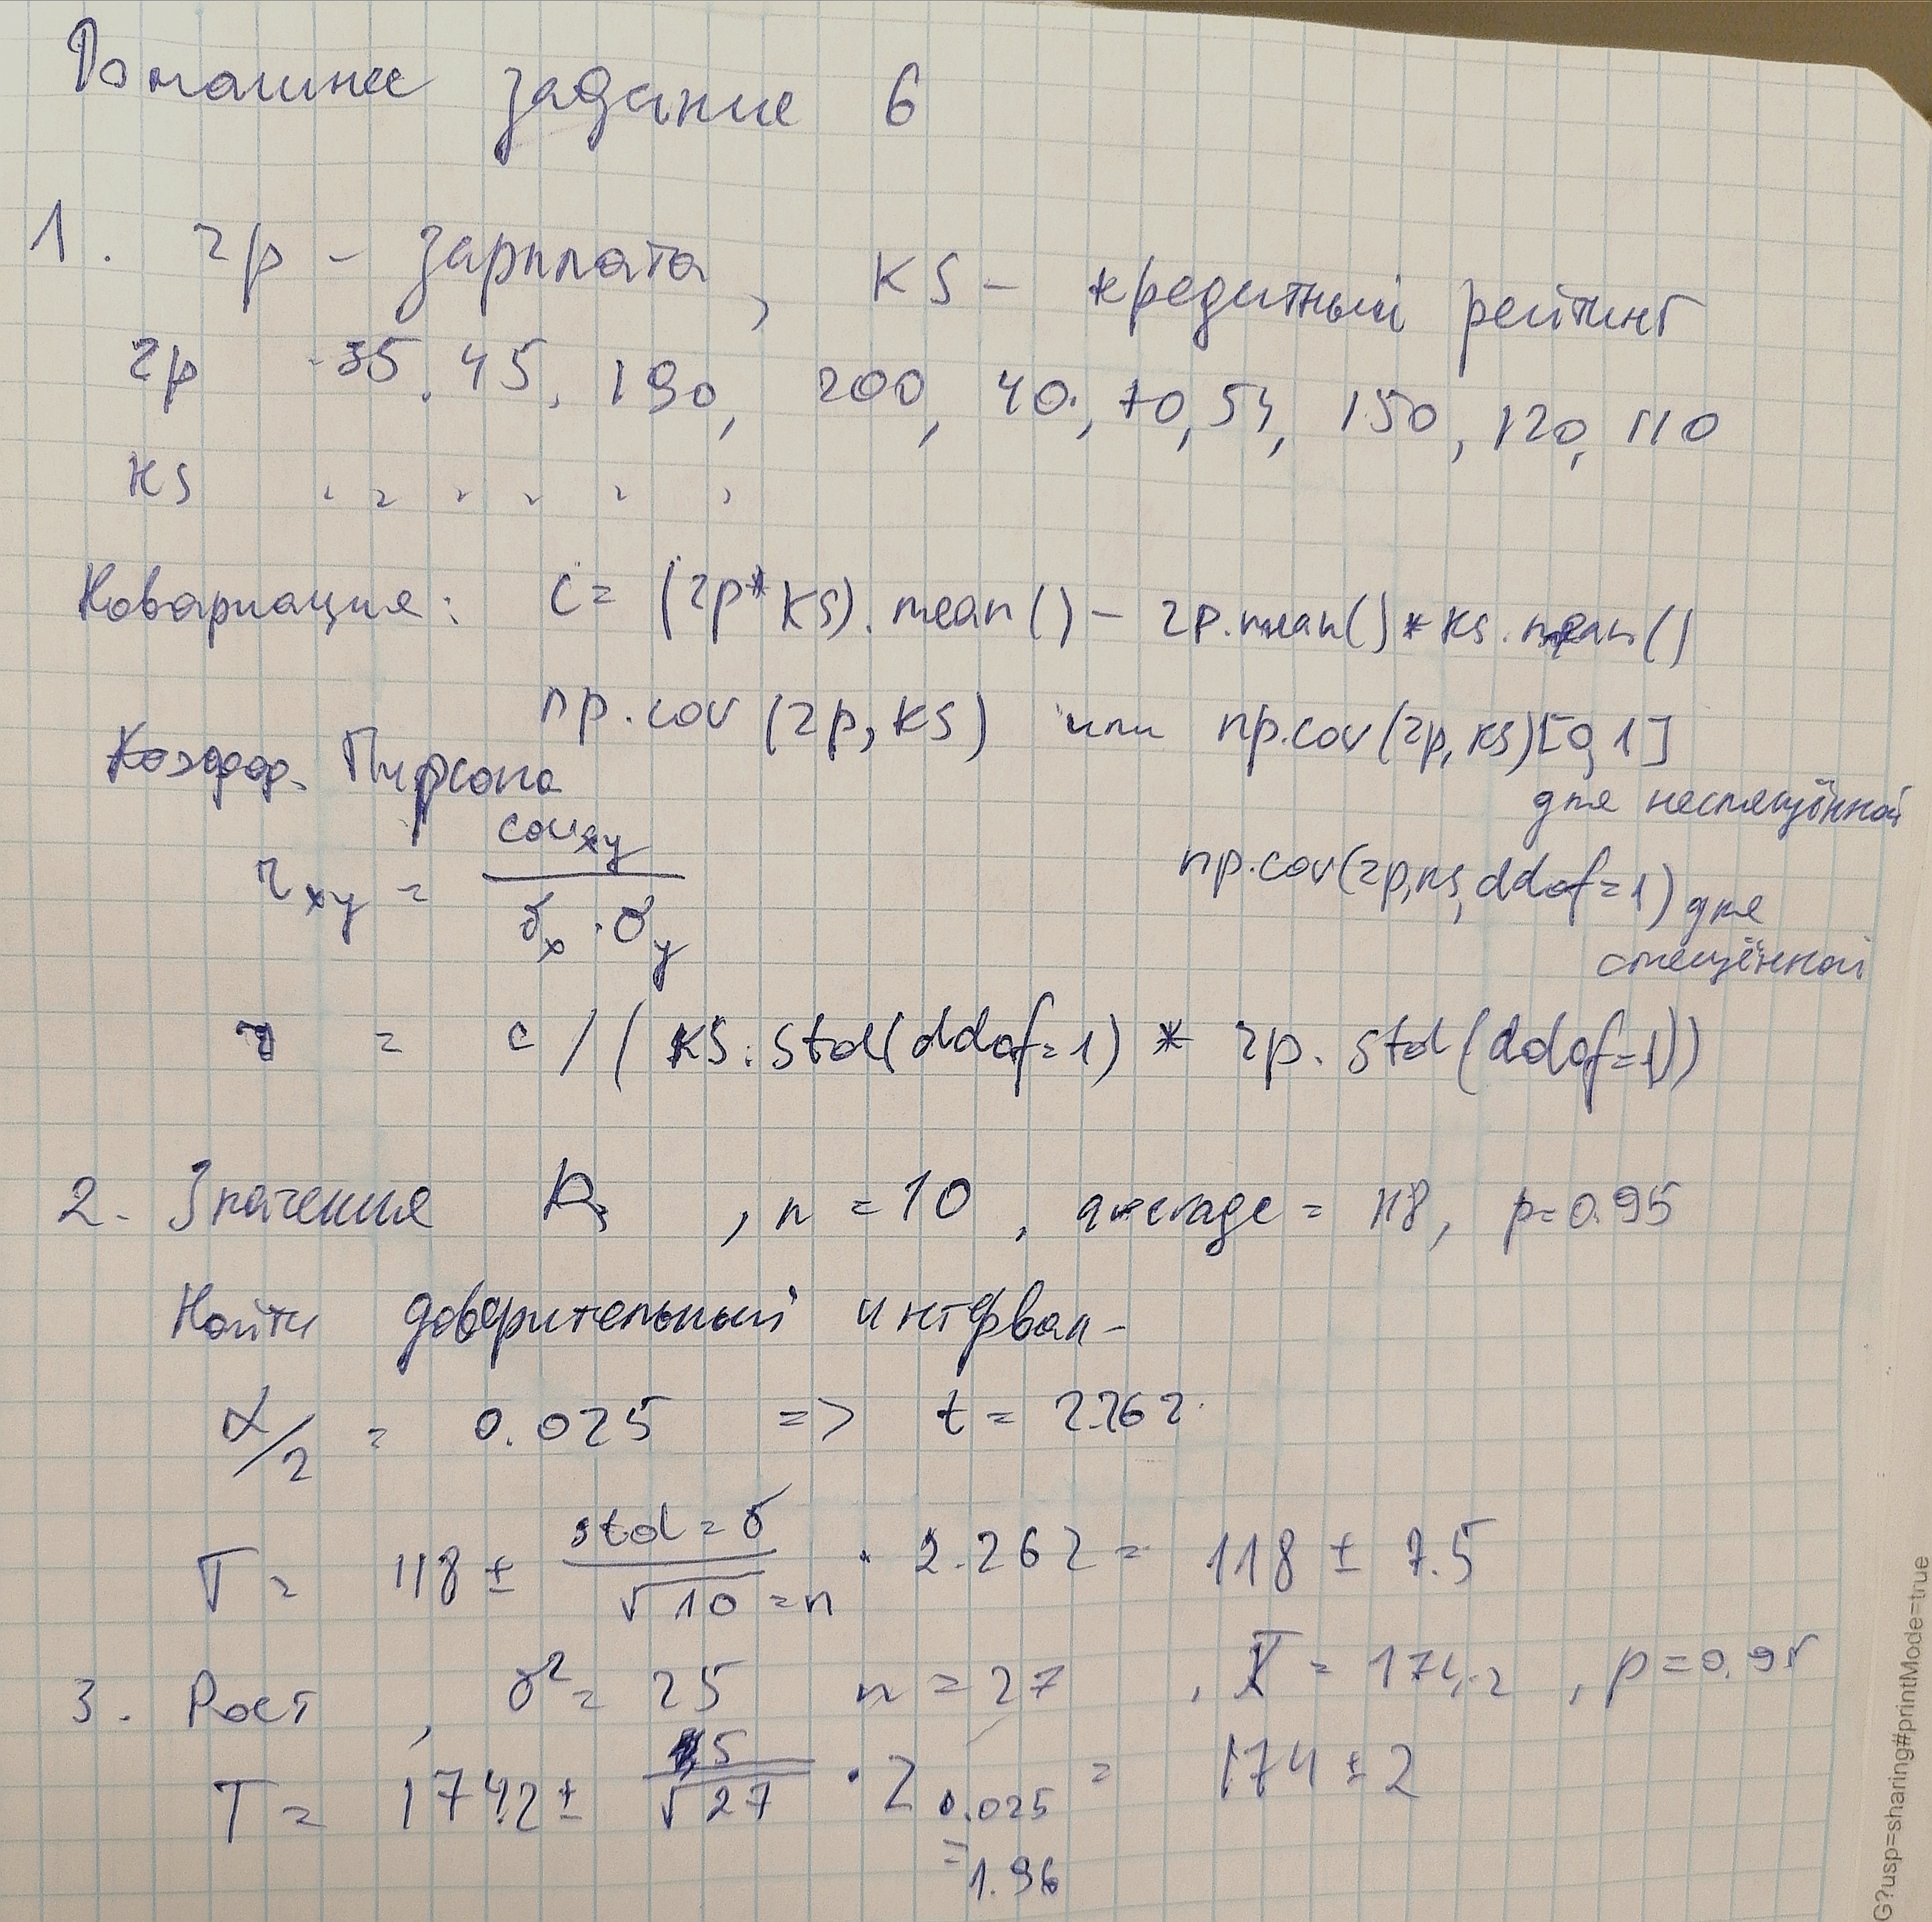 Домашнее задание 6
1. zp - зарплата, KS - кредитный рейтинг
zp 35, 45, 190, 200, 40, 70, 54, 150, 120, 110
KS , , , , , ,
Ковариация: C = (zp*KS).mean() - zp.mean()*KS.mean()
np.cov(zp, KS) или np.cov(zp, KS)[0,1]
для несмещённой
Коэфф. Пирсона
np.cov(zp, ks, ddof=1) для
смещённой
r xy = cov xy / σx · σy
r = c / (KS.std(ddof=1) * zp.std(ddof=1))
2. Значения , n = 10, average = 118, p=0.95
Найти доверительный интервал -
α/2 = 0.025 => t = 2.262.
T = 118 ± std=σ / √10 =n · 2.262 = 118 ± 7.5
3. Рост, σ² = 25 n = 27, X̅ = 174,2, p=0.95
T = 174,2 ± 5 / √27 · Z 0.025 = 174 ± 2
=1.96
G?usp=sharing#printMode=true